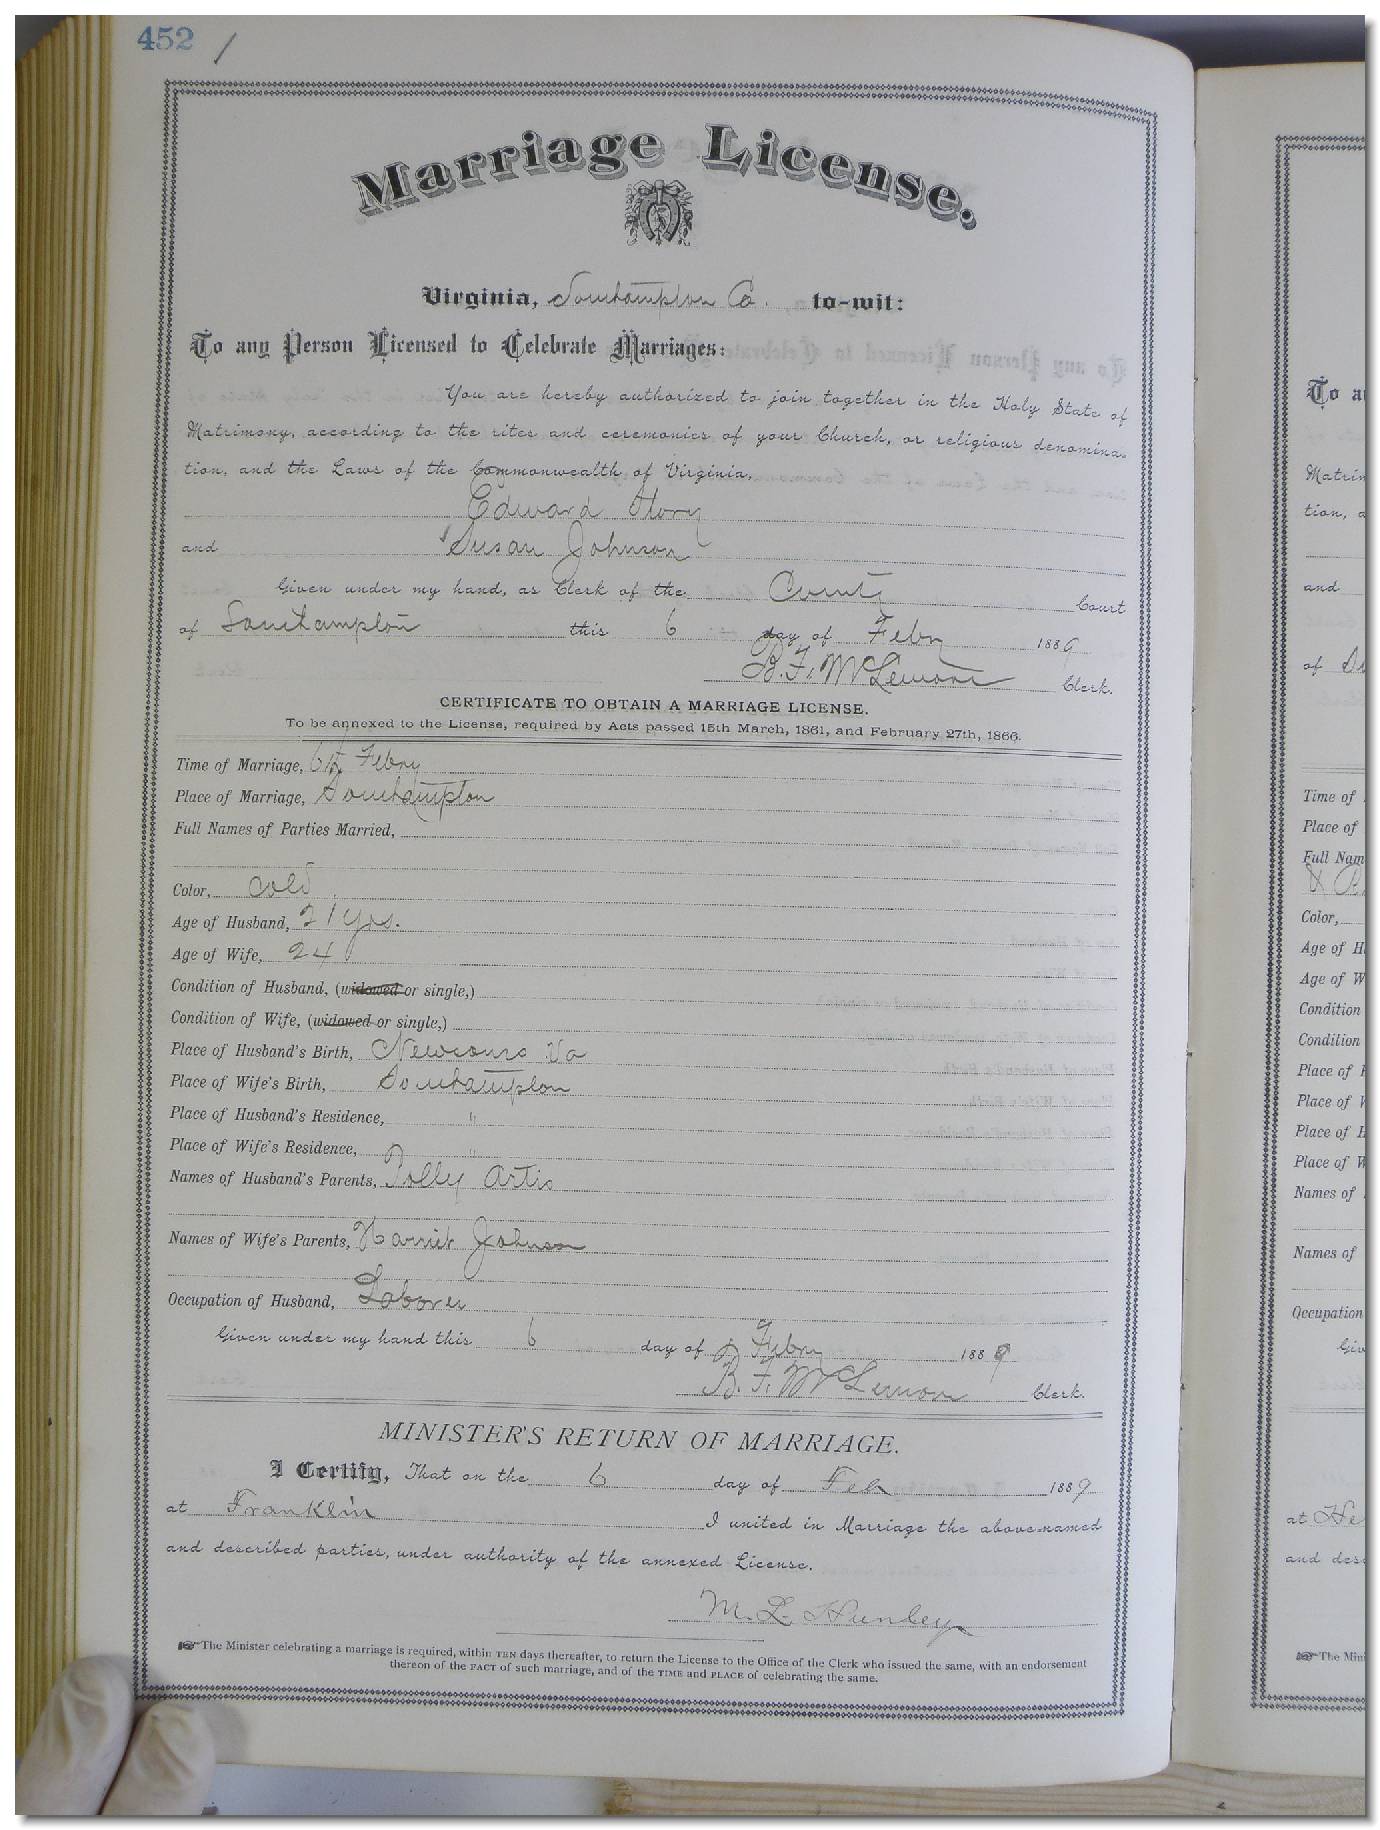 452 /
Marriage License.
Virginia, Southampton Co. to-wit:
To any Person Licensed to Celebrate Marriages:
You are hereby authorized to join together in the Holy State of
Matrimony, according to the rites and ceremonies of your Church, or religious denomina-
tion, and the Laws of the Commonwealth of Virginia.
Edward Story
and Susan Johnson
Given under my hand, as Clerk of the County Court
of Southampton this 6 day of Feby 1889
B. F. McLemore Clerk.
CERTIFICATE TO OBTAIN A MARRIAGE LICENSE.
To be annexed to the License, required by Acts passed 15th March, 1861, and February 27th, 1866.
Time of Marriage, 6th Febry
Place of Marriage, Southampton
Full Names of Parties Married,
Color, cold
Age of Husband, 21 yrs.
Age of Wife, 24
Condition of Husband, (widowed or single,)
Condition of Wife, (widowed or single,)
Place of Husband's Birth, Va
Place of Wife's Birth, Southampton
Place of Husband's Residence, "
Place of Wife's Residence, "
Names of Husband's Parents, Polly Artis
Names of Wife's Parents, Harriet Johnson
Occupation of Husband, Laborer
Given under my hand this 6 day of Febry 1889
B. F. McLemore Clerk.
MINISTER'S RETURN OF MARRIAGE.
I Certify, That on the 6 day of Feb 1889
at Franklin I united in Marriage the above-named
and described parties, under authority of the annexed License.
M. L. Hurley
The Minister celebrating a marriage is required, within TEN days thereafter, to return the License to the Office of the Clerk who issued the same, with an endorsement
thereof of the FACT of such marriage, and of the TIME and PLACE of celebrating the same.
To a
Matrim
tion, a
and
of
Time of
Place of
Full Nam
Color,
Age of H
Age of W
Condition
Condition
Place of H
Place of W
Place of H
Place of W
Names of
Names of
Occupation
Giv
at He
and desc
The Mini